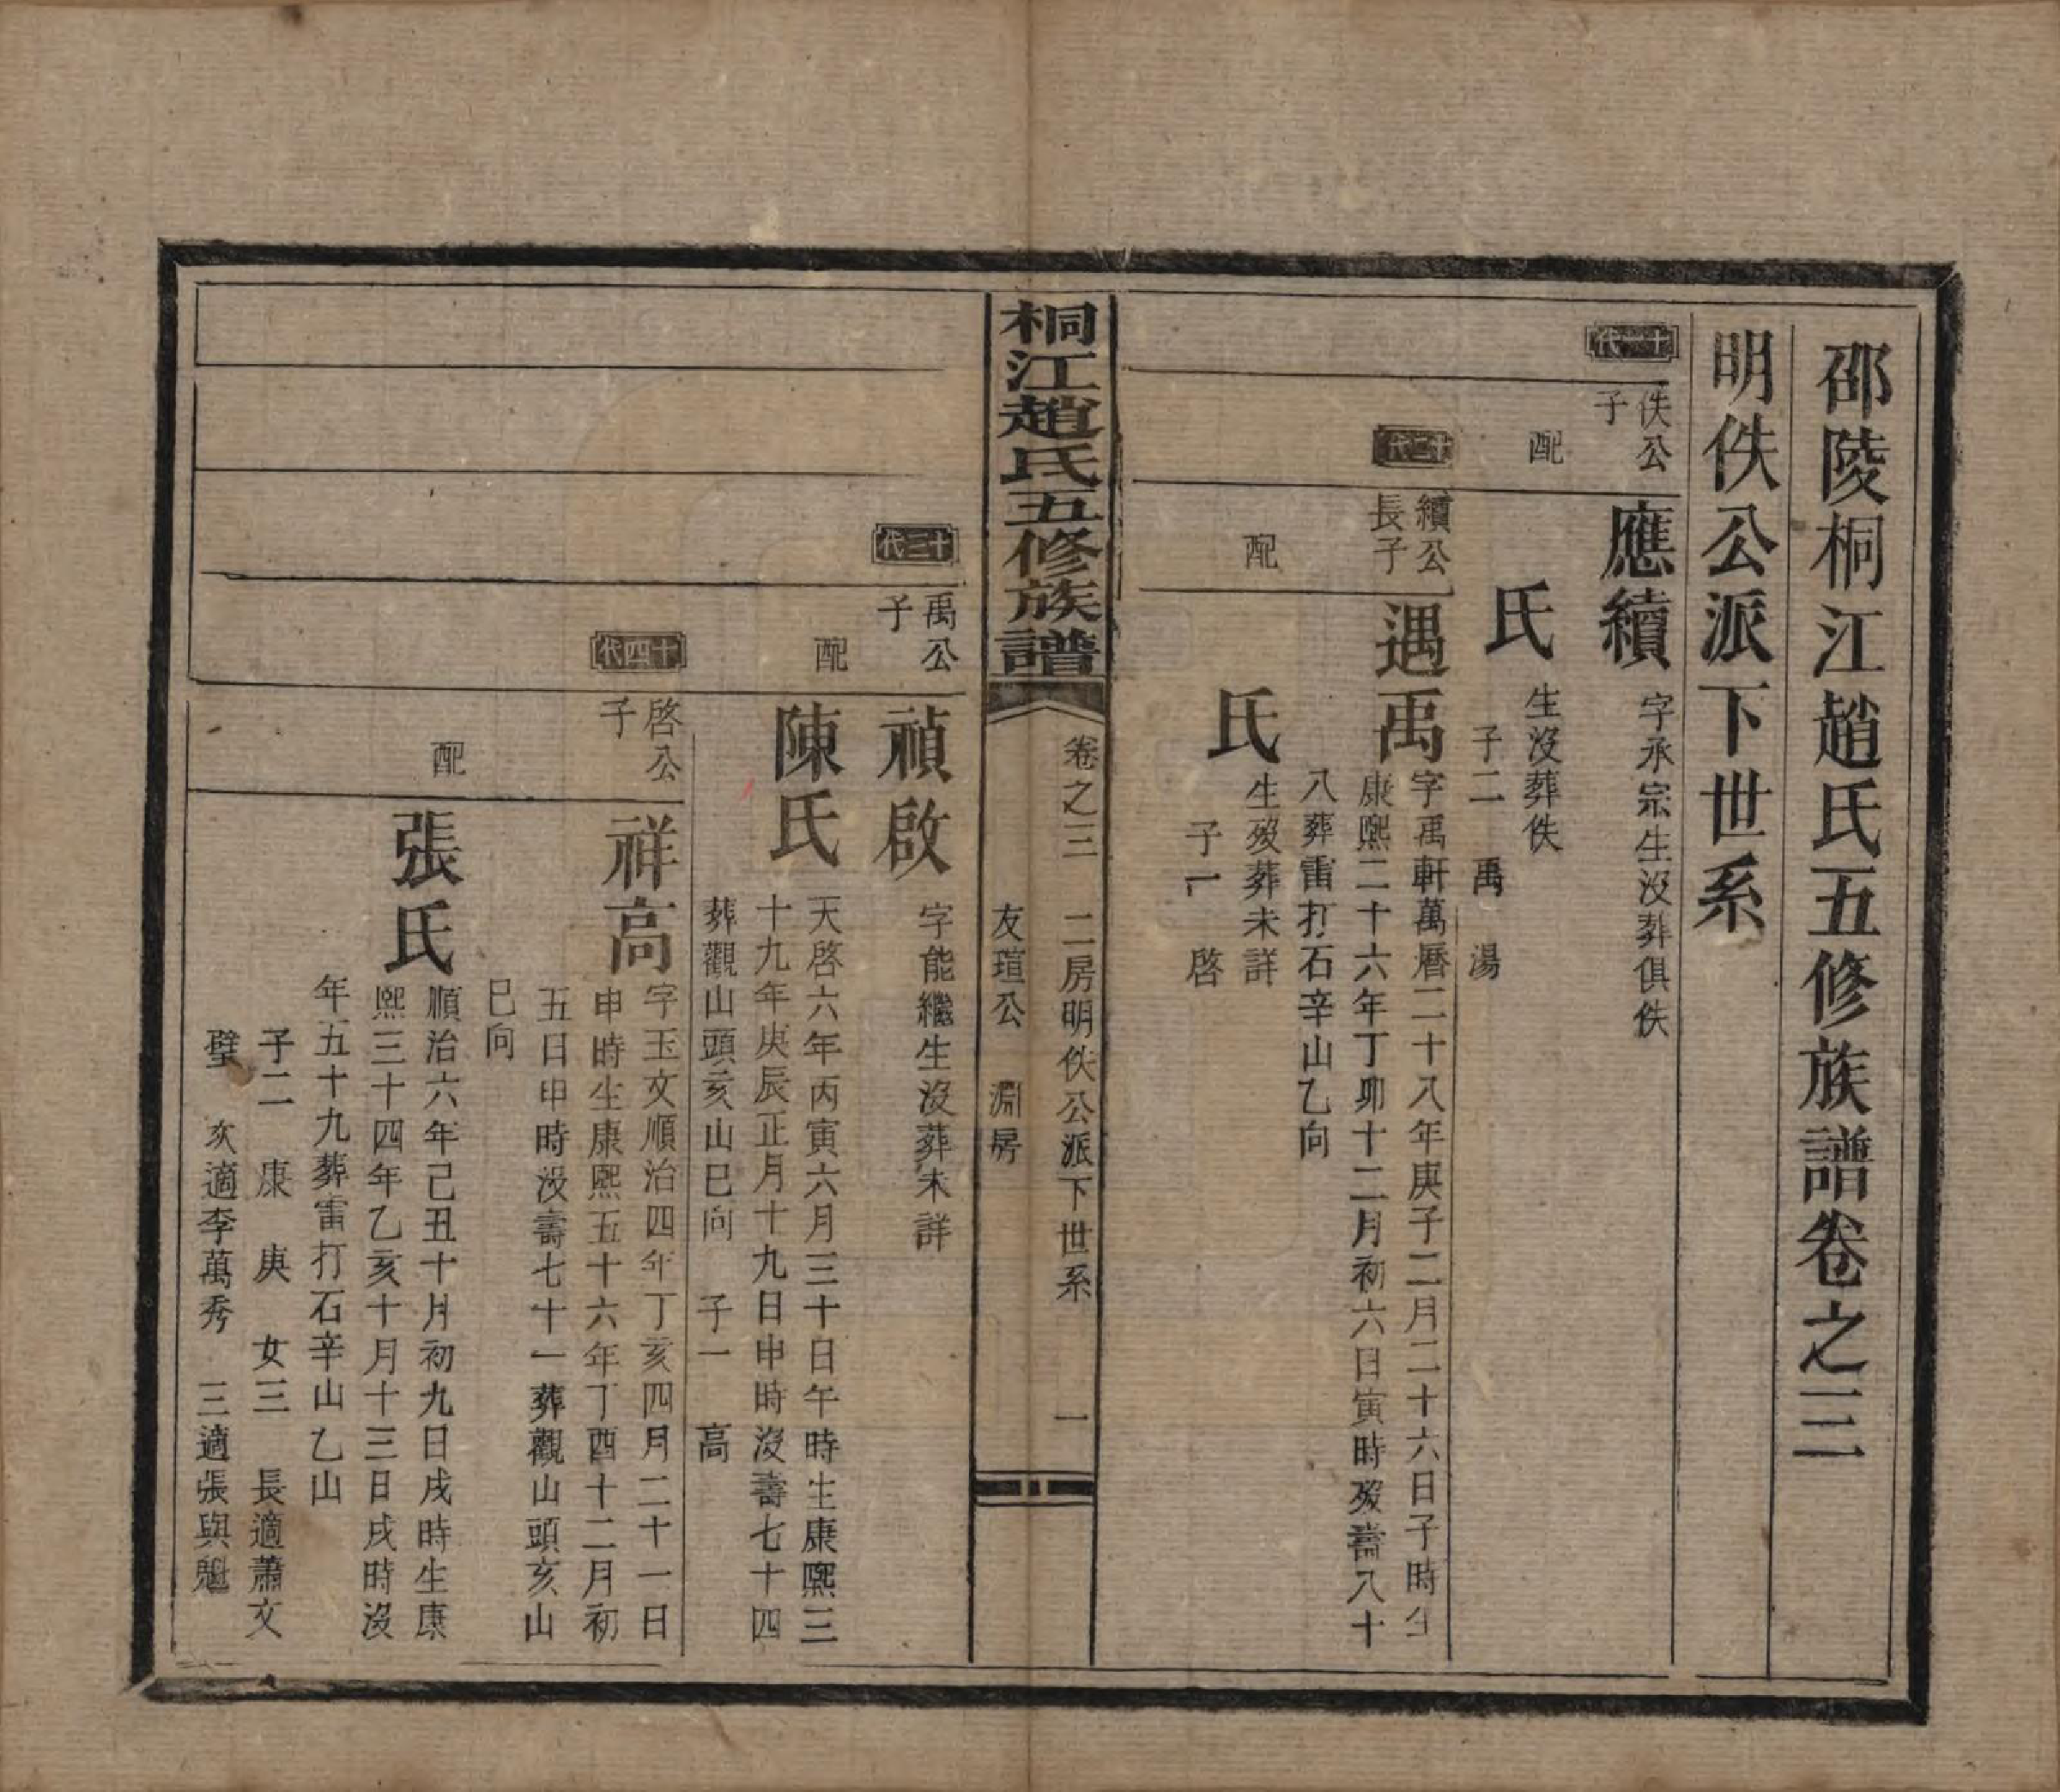 邵陵桐江趙氏五修族譜卷之三
明佚公派下世系
十一代
佚公
子
應續
字承宗生沒葬俱佚
配
氏
生沒葬佚
子二　禹　湯
十二代
續公
長子
遇禹
字禹軒萬曆二十八年庚子二月二十六日子時生
康熙二十六年丁卯十二月初六日寅時歿壽八十
八葬雷打石辛山乙向
配
氏
生歿葬未詳
子一　啓
桐江趙氏五修族譜
卷之三　二房明佚公派下世系　一
友瑄公　淵房
十三代
禹公
子
禎啟
字能繼生沒葬未詳
配
陳氏
天啓六年丙寅六月三十日午時生康熙三
十九年庚辰正月十九日申時沒壽七十四
葬觀山頭亥山巳向　子一　高
十四代
啓公
子
祥高
字玉文順治四年丁亥四月二十一日
申時生康熙五十六年丁酉十二月初
五日申時沒壽七十一葬觀山頭亥山
巳向
配
張氏
順治六年己丑十月初九日戌時生康
熙三十四年乙亥十月十三日戌時沒
年五十九葬雷打石辛山乙山
子二　康　庚　女三　長適蕭文
璧　次適李萬秀　三適張與魁